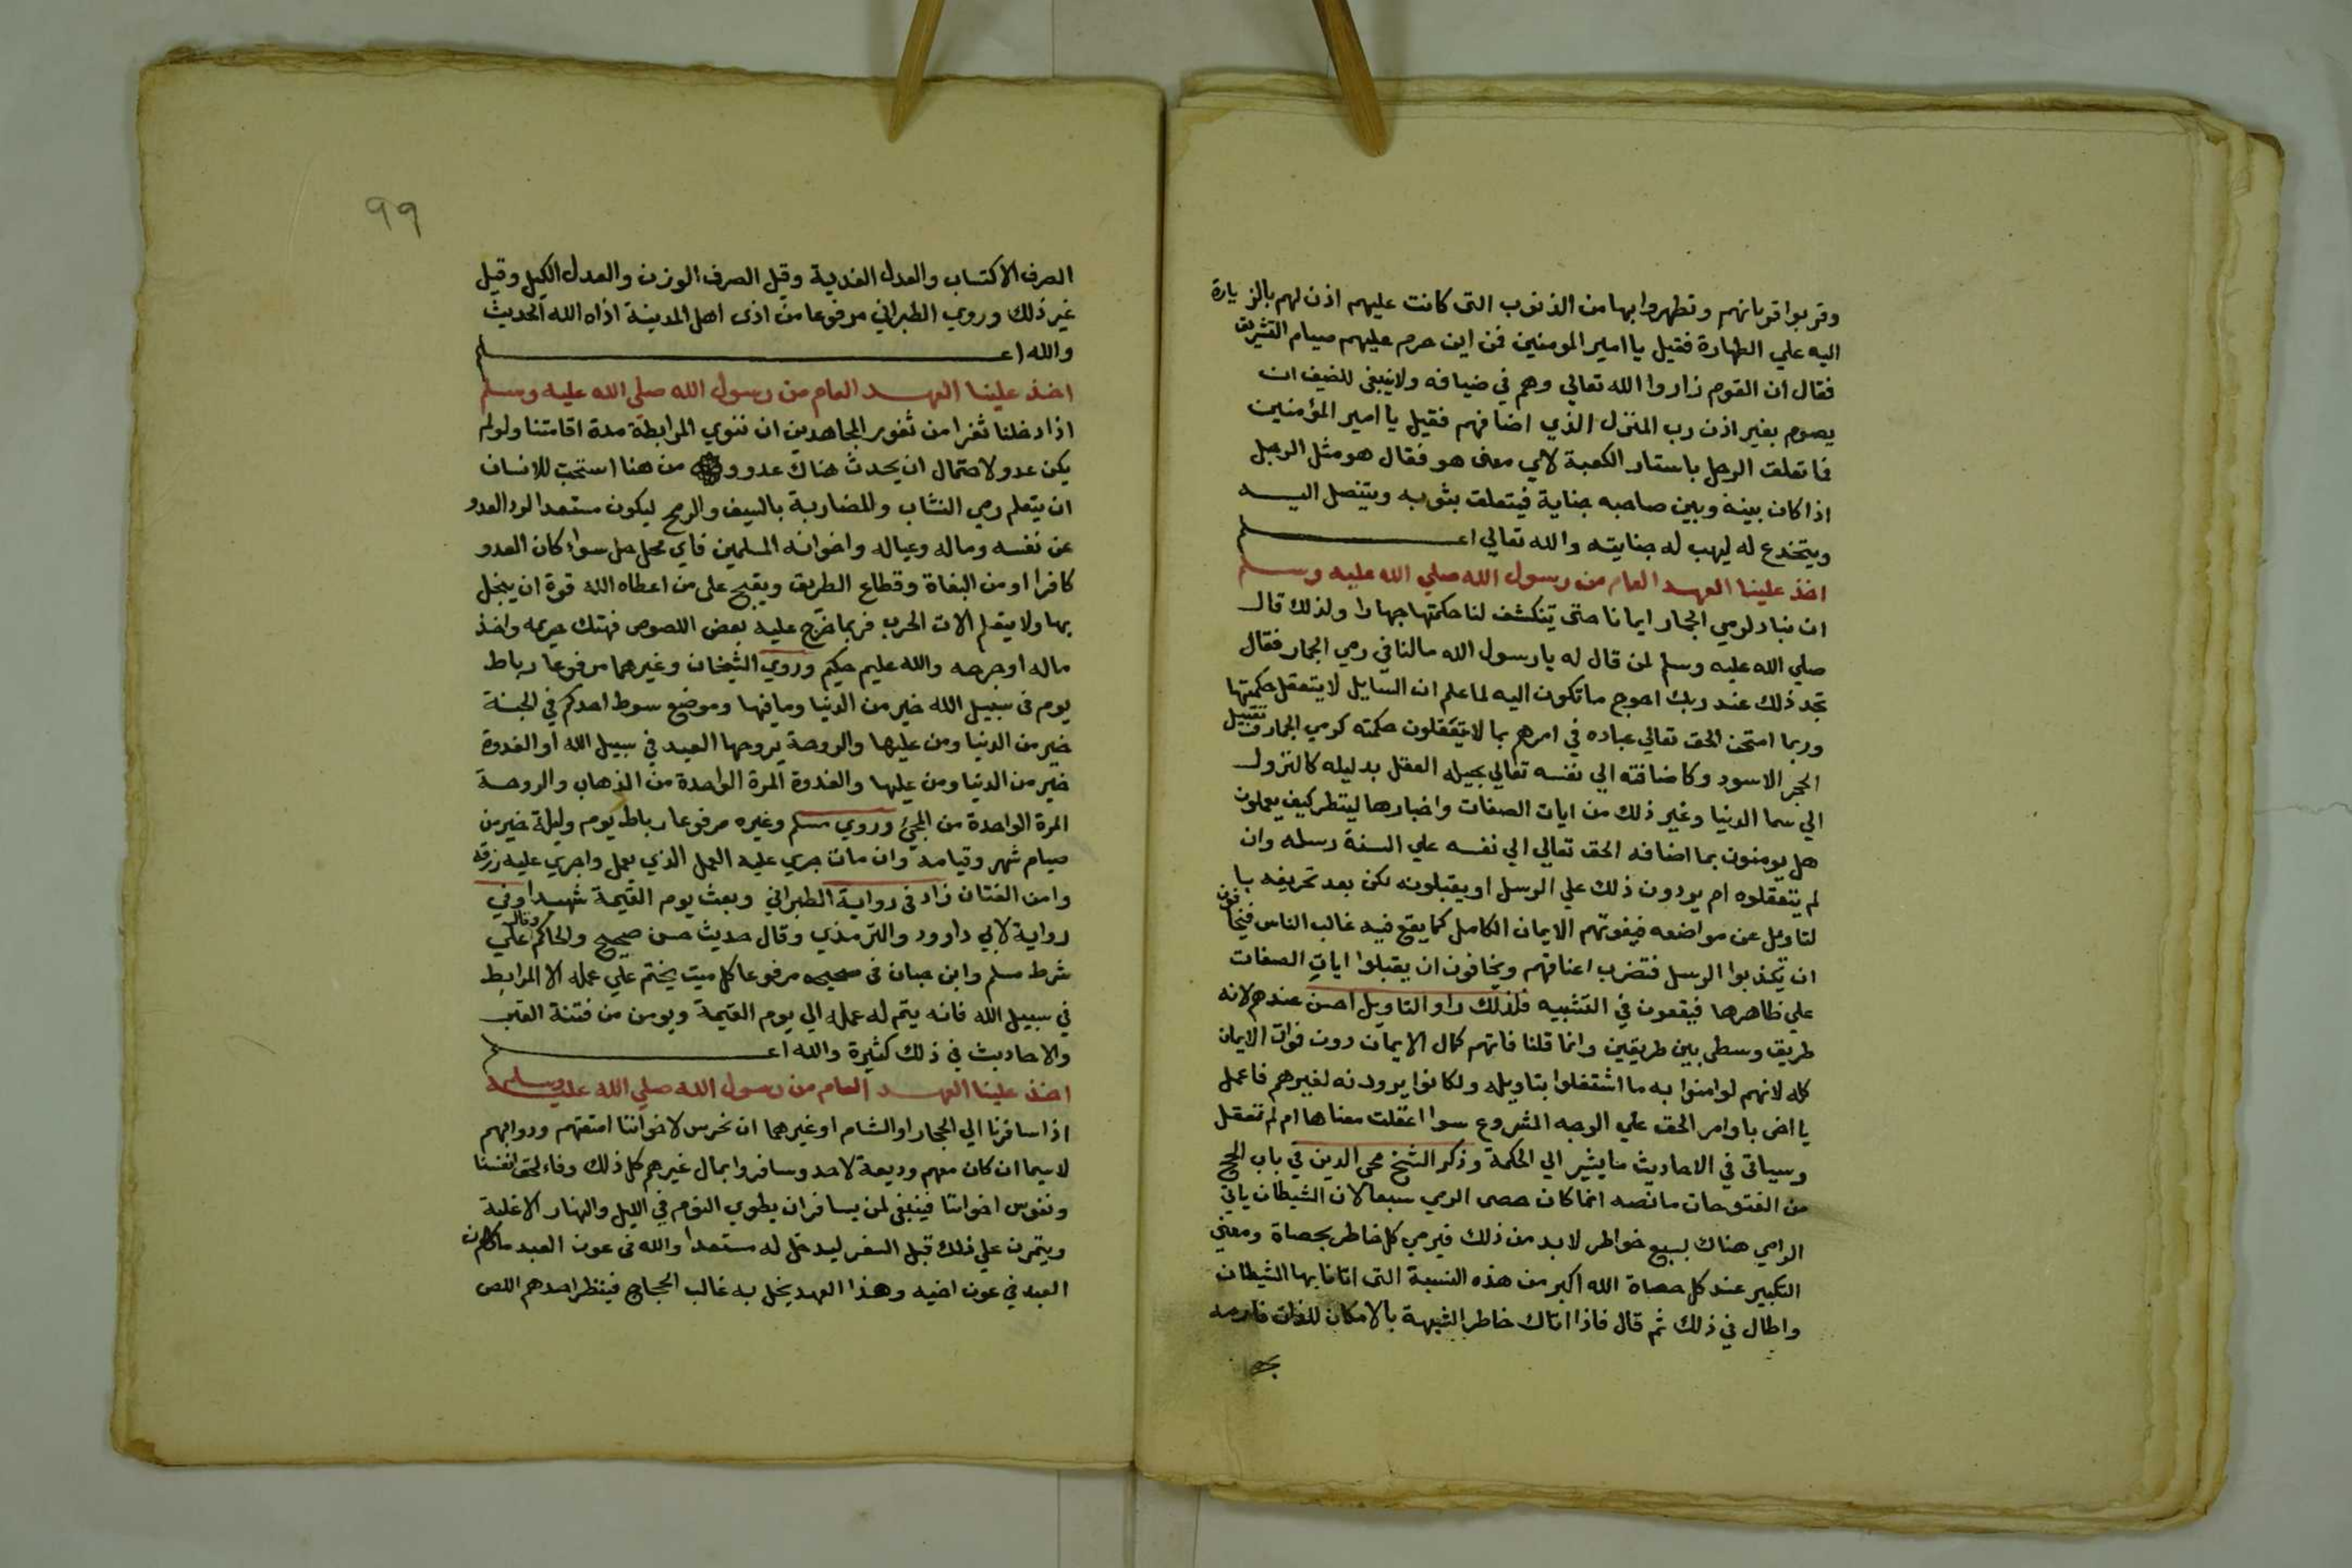 وقربوا قربانهم وتطهروا بها من الذنوب التى كانت عليهم اذن لهم بالزيارة
اليه علي الطهارة فقيل يا امير المومنين فمن اين حرم عليهم صيام التشريق
فقال ان القوم زاروا الله تعالي وهم في ضيافه ولا ينبغى للضيف ان
يصوم بغير اذن رب المنزل الذي اضافهم فقيل يا امير المؤمنين
فما تعلق الرجل باستار الكعبة لاي معنى هو فقال هو مثل الرجل
اذا كان بينه وبين صاحبه جناية فيتعلق بثوبه ويتنصل اليه
ويتخدع له ليهب له جنايته والله تعالي اعلم
اخذ علينا العهد العام من رسول الله صلي الله عليه وسلم
ان نبادر لرمي الجمار ايمانا حتى يتنكشف لنا حكمتها جهارا ولذلك قال
صلي الله عليه وسلم لمن قال له يا رسول الله مالنا في رمي الجمار فقال
تجد ذلك عند ربك احوج ما تكون اليه لما علم ان السايل لا يتعقل حكمتها
وربما امتحن الحق تعالي عباده في امرهم بما لا يتعقلون حكمته كرمي الجمار وتقبيل
الحجر الاسود وكاضافته الي نفسه تعالي يحيله العقل بدليله كالنزول
الي سما الدنيا وغير ذلك من ايات الصفات واخبارها لينظر كيف يعملون
هل يومنون بما اضافه الحق تعالي الي نفسه علي السنة رسله وان
لم يتعقلوه ام يردون ذلك علي الرسل او يقبلونه لكن بعد تحريفه با
لتاويل عن مواضعه فيفوتهم الايمان الكامل كما يقع فيه غالب الناس فيخافون
ان يكذبوا الرسل فتضرب اعناقهم ويخافون ان يقبلوا ايات الصفات
علي ظاهرها فيقعون في التشبيه فلذلك راو التاويل احسن عندهم لانه
طريق وسطى بين طريقين وانما قلنا فاتهم كمال الايمان دون فوات الايمان
كله لانهم لو امنوا به ما اشتغلوا بتاويله ولكانوا يردونه لغيرهم فاعمل
يا اخى باوامر الحق علي الوجه المشروع سوا اعقلت معناها ام لم تعقل
وسياتى في الاحاديث ما يشير الي الحكمة وذكر الشيخ محى الدين في باب الحج
من الفتوحات ما نصه انما كان حصى الرمي سبعا لان الشيطان ياتي
الرامي هناك بسبع خواطر لابد من ذلك فيرمي كل خاطر بحصاة ومعنى
التكبير عند كل حصاة الله اكبر من هذه النسبة التى اتانا بها الشيطان
واطال في ذلك ثم قال فاذا اتاك خاطر الشبهة بالامكان للذات فارمه
٩٩
الصرف الاكتساب والعدل الفدية وقيل الصرف الوزن والعدل الكيل وقيل
غير ذلك وروي الطبراني مرفوعا من اذى اهل المدينة اذاه الله الحديث
والله اعلم
اخذ علينا العهد العام من رسول الله صلى الله عليه وسلم
اذا دخلنا ثغرا من ثغور المجاهدين ان ننوي المرابطة مدة اقامتنا ولو لم
يكن عدو لاحتمال ان يحدث هناك عدو و من هنا استحب للانسان
ان يتعلم رمي النشاب والمضاربة بالسيف والرمح ليكون مستعدا لرد العدو
عن نفسه وماله وعياله واخوانه المسلمين فاي محل حل سواء كان العدو
كافرا او من البغاة وقطاع الطريق ويقبح على من اعطاه الله قوة ان يبخل
بها ولا يتعلم الات الحرب فربما خرج عليه بعض اللصوص فهتك حريمه واخذ
ماله او جرحه والله عليم حكيم وروي الشيخان وغيرهما مرفوعا رباط
يوم فى سبيل الله خير من الدنيا وما فيها وموضع سوط احدكم في الجنة
خير من الدنيا ومن عليها والروحة يروحها العبد في سبيل الله او الغدوة
خير من الدنيا ومن عليها والغدوة المرة الواحدة من الذهاب والروحة
المرة الواحدة من المجئ وروي مسلم وغيره مرفوعا رباط يوم وليلة خير من
صيام شهر وقيامه وان مات جري عليه العمل الذي يعمل واجري عليه رزقه
وامن الفتان زاد فى رواية الطبراني وبعث يوم القيمة شهيدا وفي
رواية لابي داوود والترمذي وقال حديث حسن صحيح والحاكم وقال علي
شرط مسلم وابن حبان فى صحيحه مرفوعا كل ميت يختم علي عمله الا المرابط
في سبيل الله فانه يتم له عمله الي يوم القيمة ويومن من فتنة القبر
والاحاديث في ذلك كثيرة والله اعلم
اخذ علينا العهد العام من رسول الله صلي الله عليه وسلم
اذا سافرنا الي الحجاز او الشام او غيرهما ان نحرس لاخواننا امتعتهم ودوابهم
لا سيما ان كان معهم وديعة لاحد وسافروا بمال غيرهم كل ذلك وفاء لحق انفسنا
ونفوس اخواننا فينبغى لمن يسافر ان يطوي النوم في الليل والنهار الا غلبة
ويتمرن علي ذلك قبل السفر ليدخل له مستعدا والله فى عون العبد ما كان
العبد في عون اخيه وهذا العهد يخل به غالب الحجاج فينظر احدهم اللص